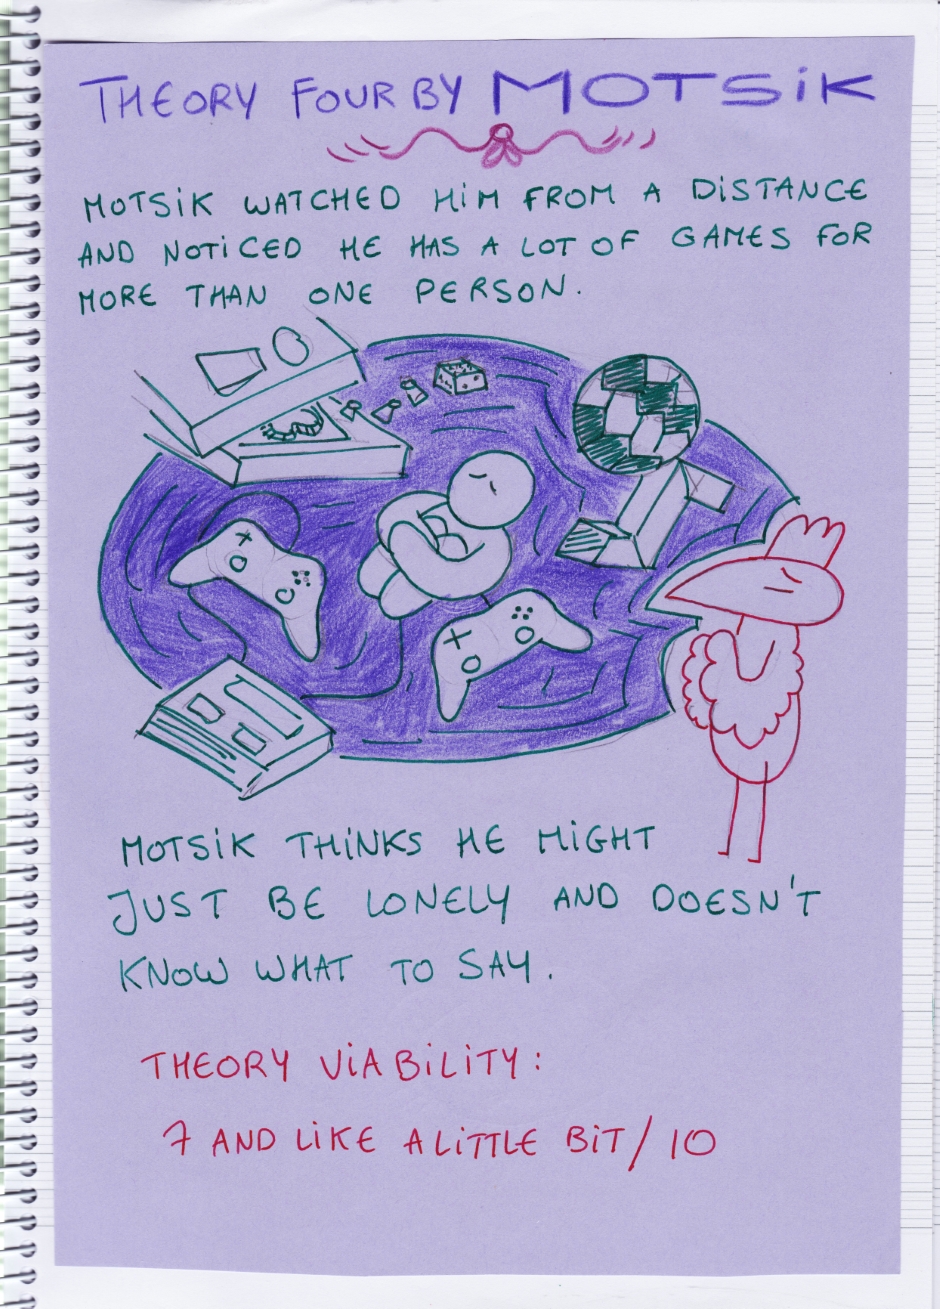 THEORY FOUR BY MOTSiK
MOTSiK WATCHED HiM FROM A DiSTANCE
AND NOTiCED HE HAS A LOT OF GAMES FOR
MORE THAN ONE PERSON.
MOTSiK THiNKS HE MiGHT
JUST BE LONELY AND DOESN'T
KNOW WHAT TO SAY.
THEORY ViABiLiTY:
7 AND LiKE A LiTTLE BiT/10